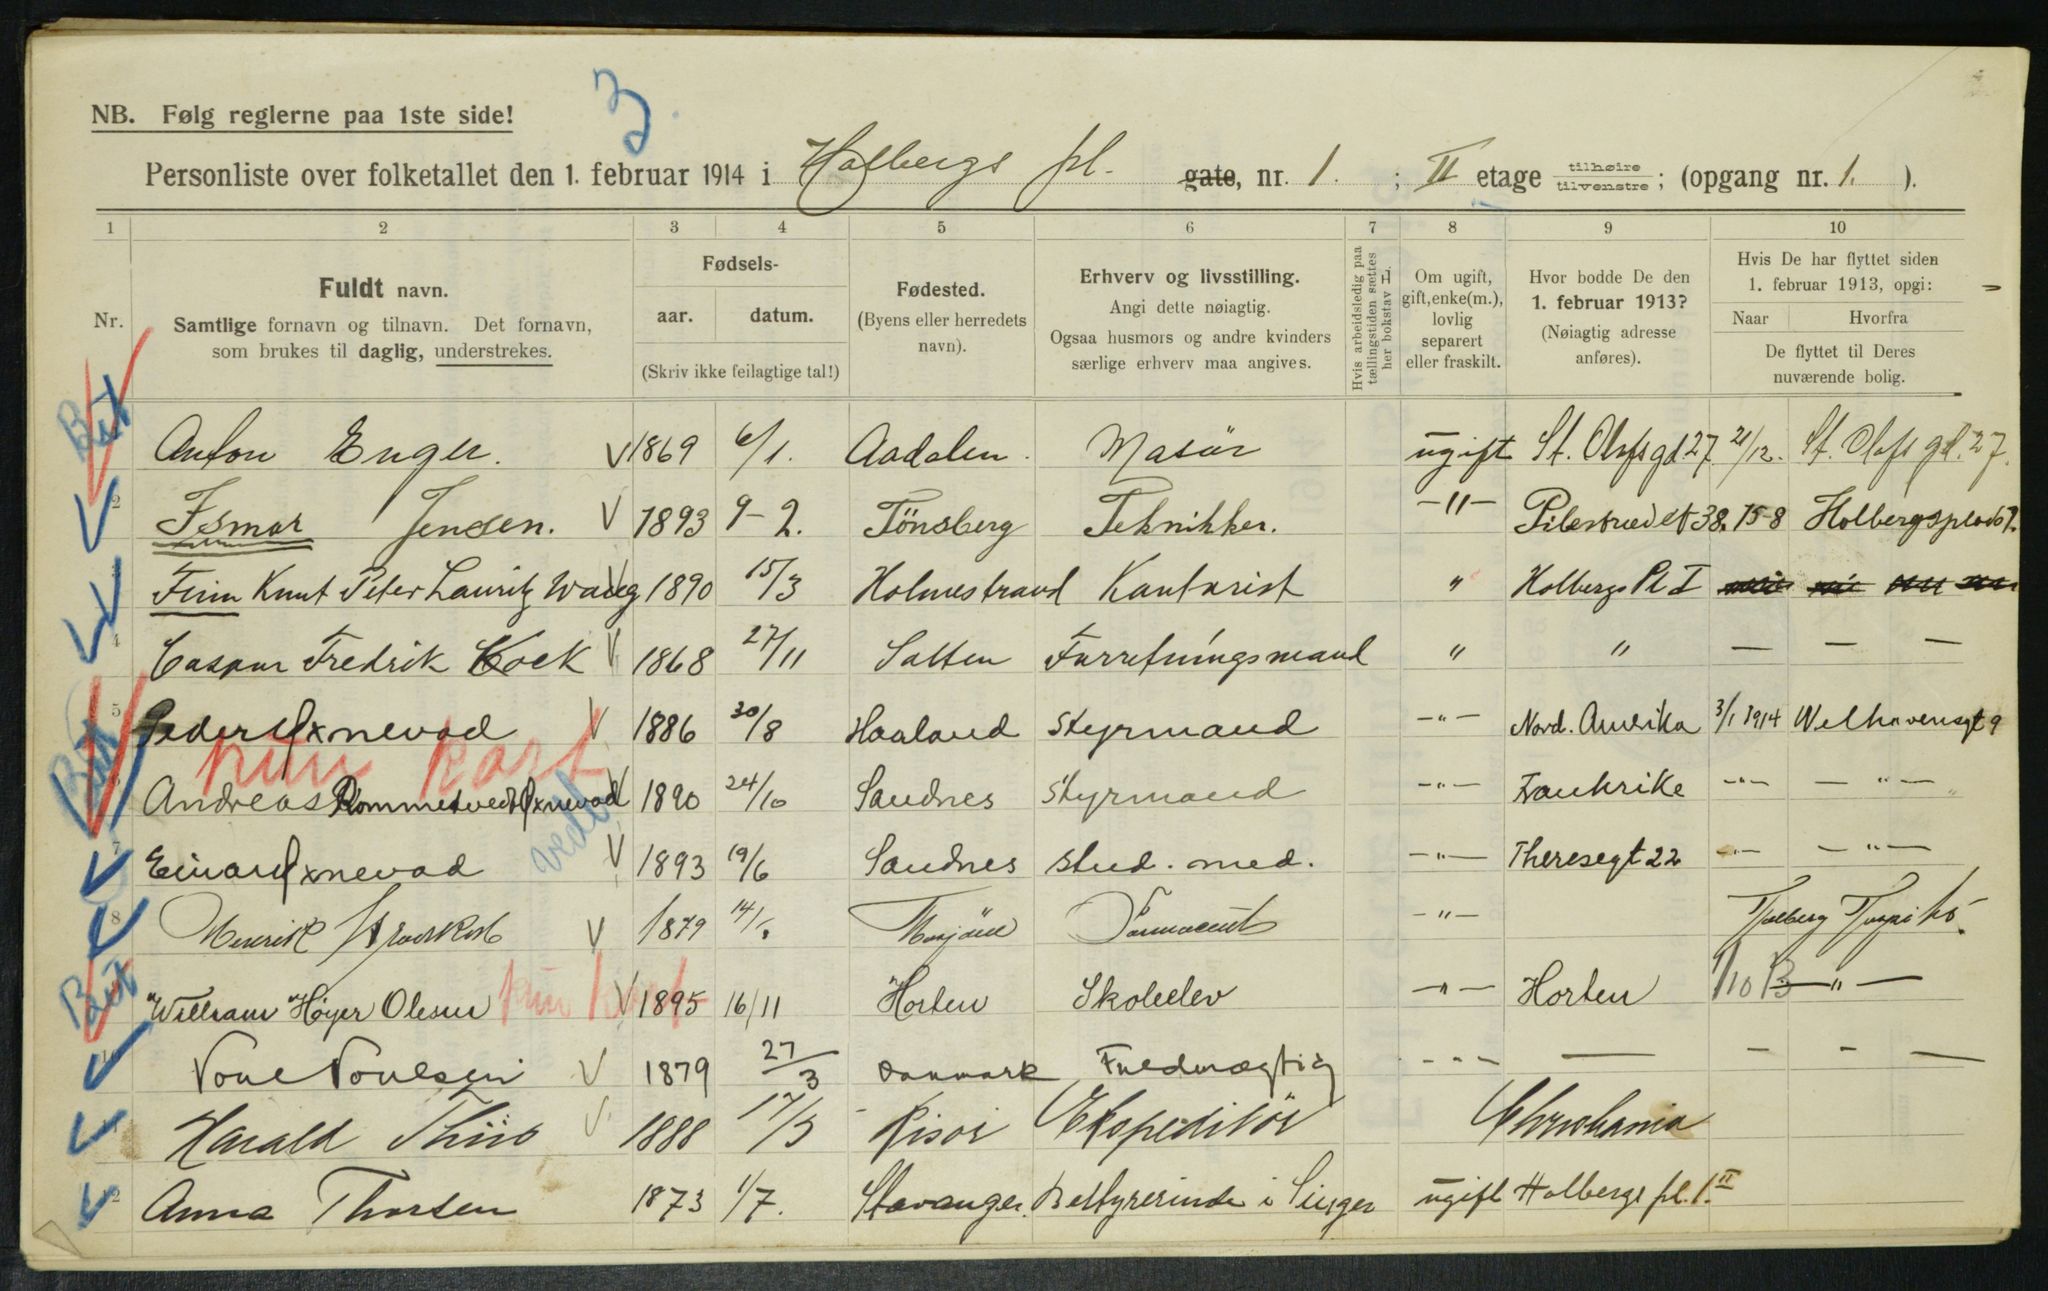 3
NB. Følg reglerne paa 1ste side!
Personliste over folketallet den 1. februar 1914 i Holbergs pl. gate, nr. 1. ; II etage tilhøire tilvenstre; (opgang nr. 1. ).
1 2 3 4 5 6 7 8 9 10
Nr.
Fuldt navn.
Samtlige fornavn og tilnavn. Det fornavn,
som brukes til daglig, understrekes.
Fødsels-
aar. datum.
(Skriv ikke feilagtige tal!)
Fødested.
(Byens eller herredets
navn).
Erhverv og livsstilling.
Angi dette nøiagtig.
Ogsaa husmors og andre kvinders
særlige erhverv maa angives.
Hvis arbeidsledig paa
tællingstiden sættes
her bokstav L.
Om ugift,
gift, enke(m.),
lovlig
separert
eller fraskilt.
Hvor bodde De den
1. februar 1913?
(Nøiagtig adresse
anføres).
Hvis De har flyttet siden
1. februar 1913, opgi:
Naar Hvorfra
De flyttet til Deres
nuværende bolig.
Anton Enger. V 1869 6/1. Aadalen. Masör ugift St. Olafs gd 27. 21/12. St. Olafs gd. 27.
2 Ismar Jensen. V 1893 9-2. Tönsberg Teknikker. -"- Pilestrædet 38. 15-8 Holbergsplads 1.
3 Finn Knut Peter Lauritz Waag V 1890 15/3 Holmestrand Kontorist " Holbergs Pl I
4 Caspar Fredrik Kock V 1868 27/11 Salten Forretningsmand " " — — —
5 Peder Oxnevad V 1886 30/8 Haaland Styrmand -"- Nord. Amerika 3/1 1914 Welhavensgt 9
kun kort
6 Andreas Rommetvedt Oxnevad V 1890 24/10 Sandnes Styrmand -"- Frankrike -"- — " —
vedt
7 Einar Oxnevad V 1893 19/6 Sandnes stud. med. -"- Theresegt 22 -"- — " —
8 Henrik V 1879 14/ Mosjöen Farmaceut -"-
"William" Höyer Olesen kun kort V 1895 16/11 Horten Skoleelev -"- Horten 1/10 13 — " —
10 Poul Poulsen V 1879 27/3 Danmark Fuldmægtig - " - — — — —
Harald Thiis V 1888 17/3 Risör Ekspeditör Christiania
12 Anna Thorsen 1873 1/7. Stavanger. Bestyrerinde i Singer ugift Holbergs pl. 1. II